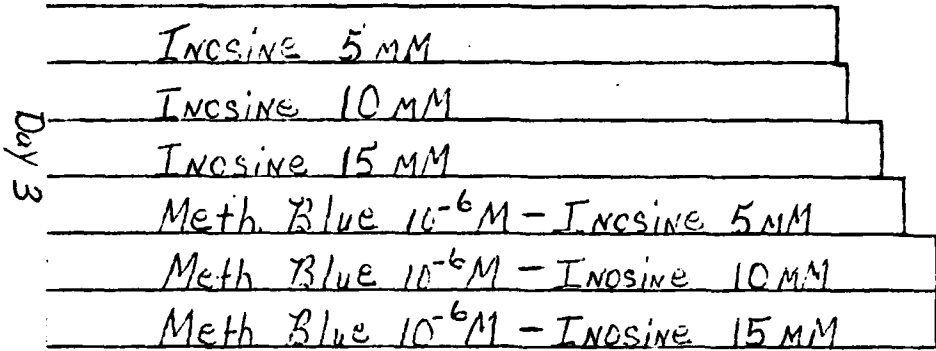 Inosine 5 mM
Inosine 10 mM
Inosine 15 mM
Day 3
Meth. Blue 10⁻⁶M - Inosine 5 mM
Meth Blue 10⁻⁶M - Inosine 10 mM
Meth Blue 10⁻⁶M - Inosine 15 mM